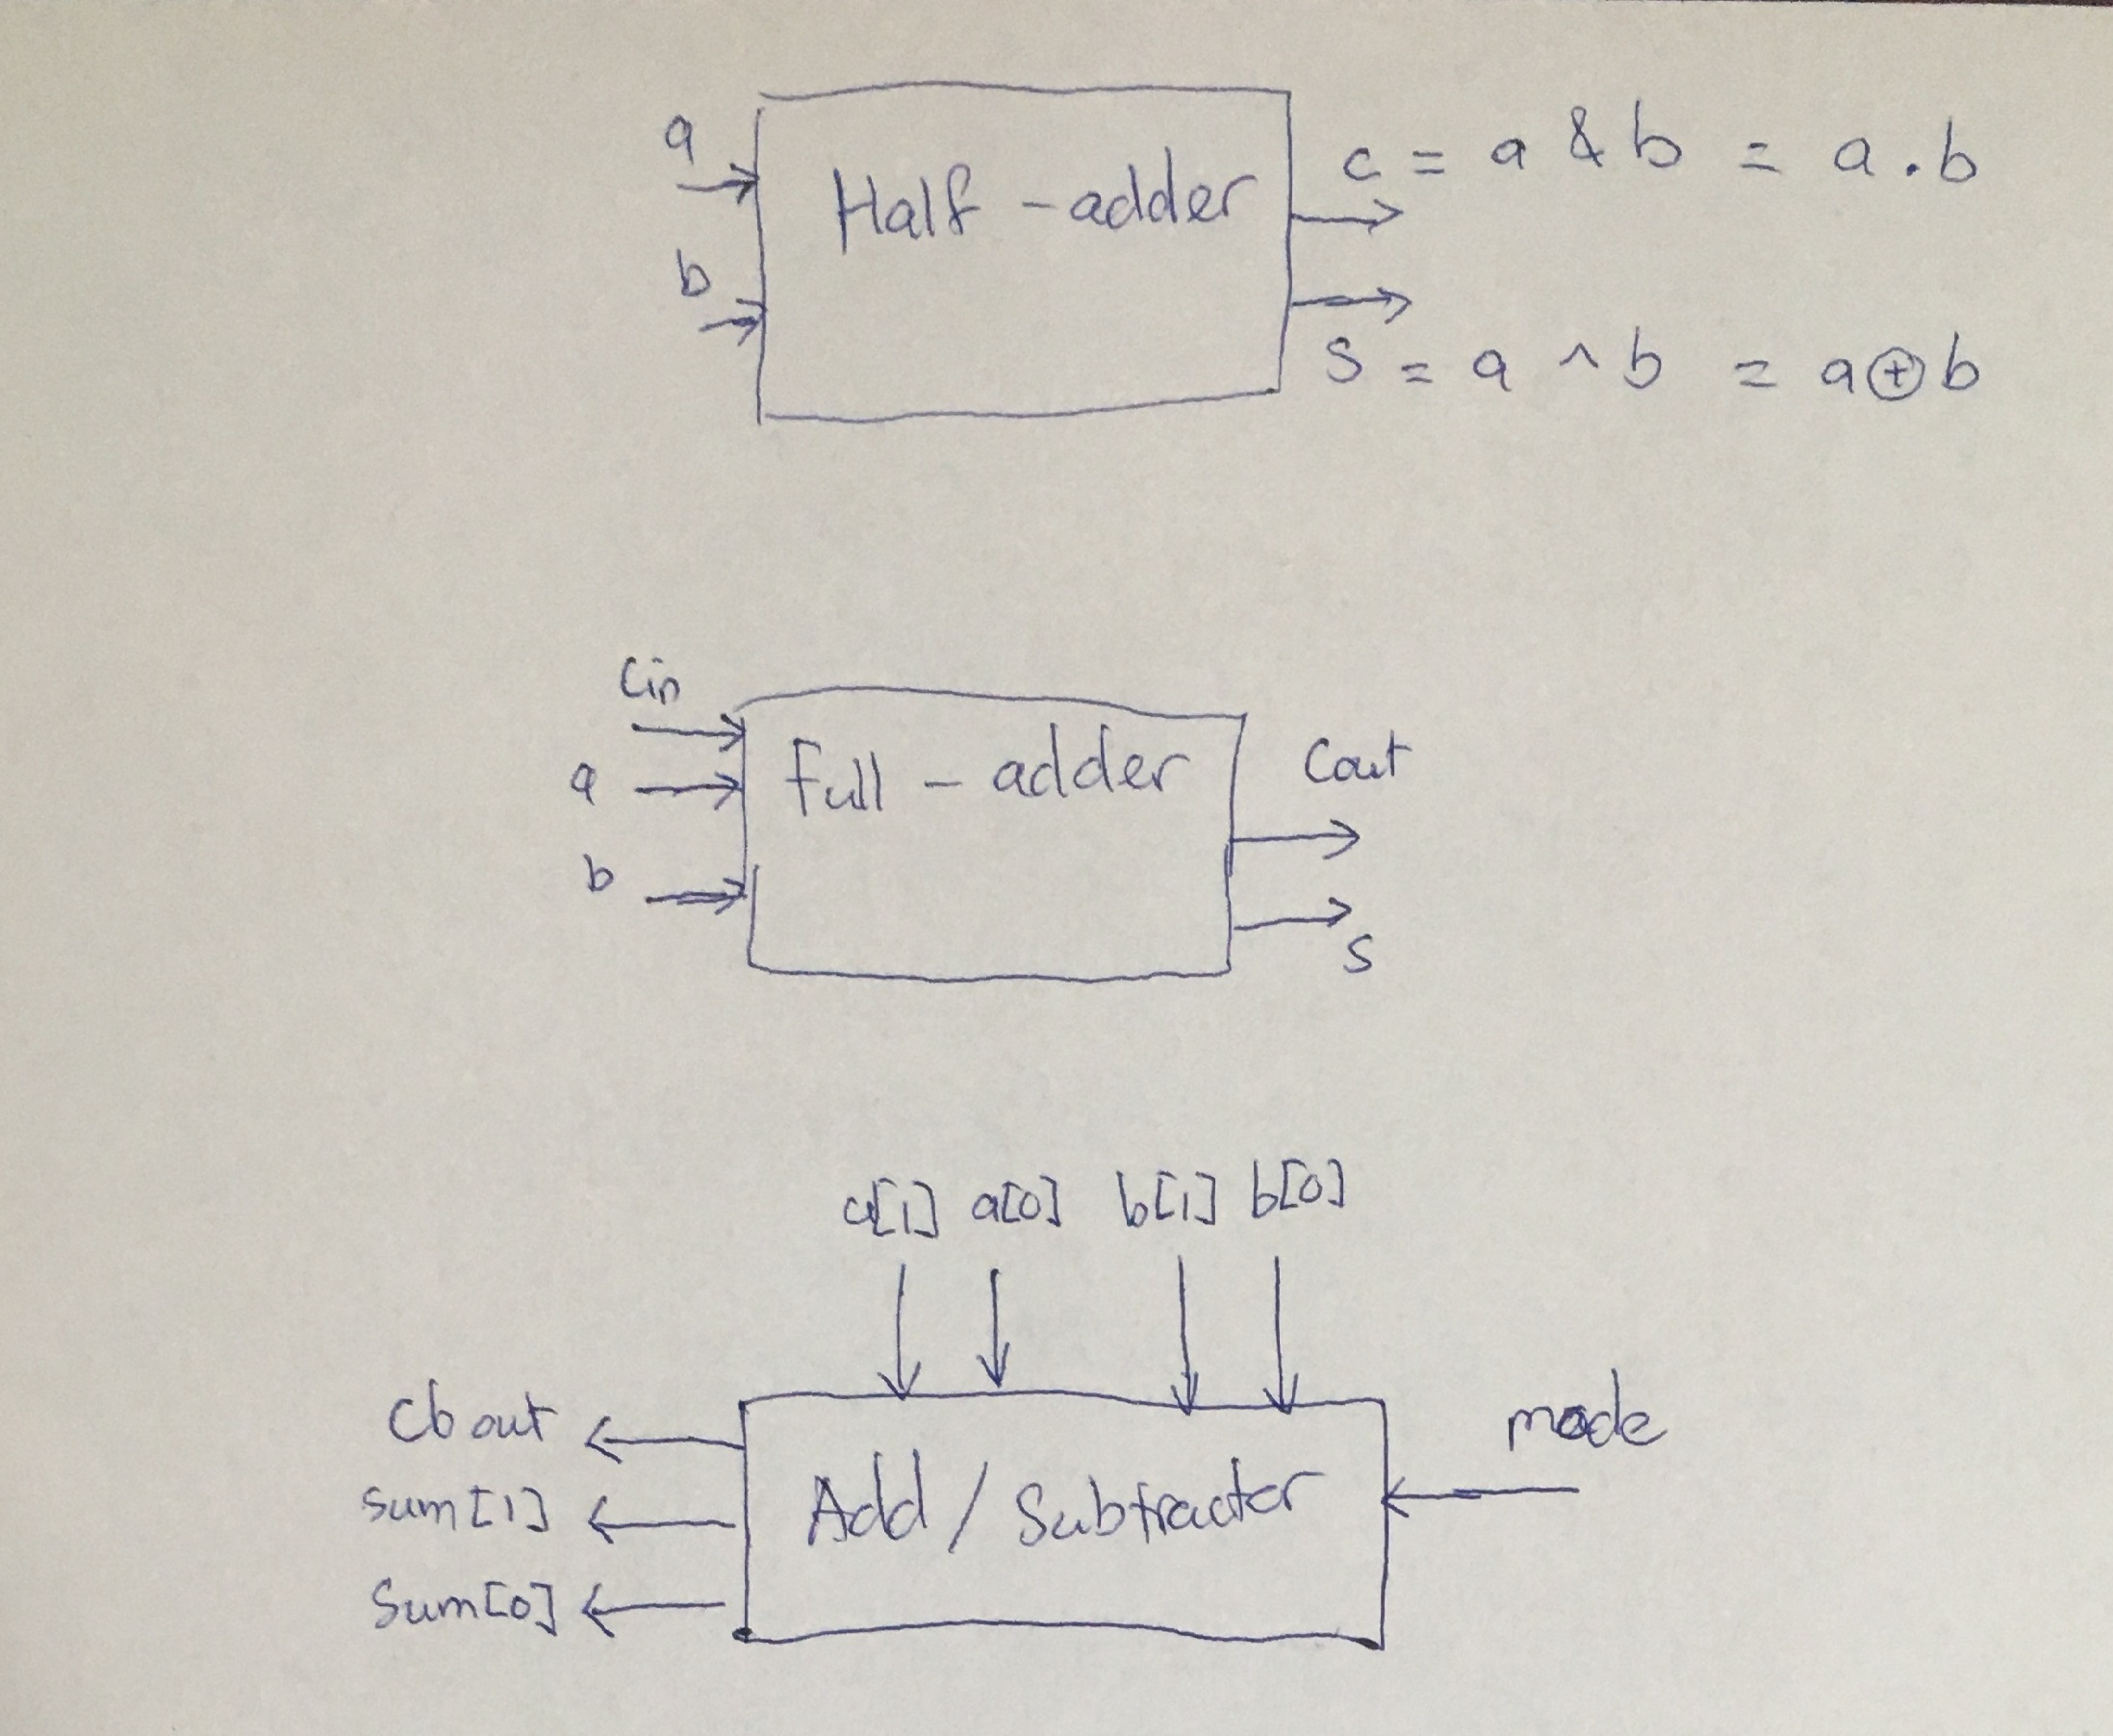 a
Half-adder
c = a & b = a . b
b
s = a ^ b = a ⊕ b
Cin
a
Full-adder
Cout
b
s
a[1] a[0] b[1] b[0]
Cbout
mode
sum[1]
Add/Subtractor
Sum[0]